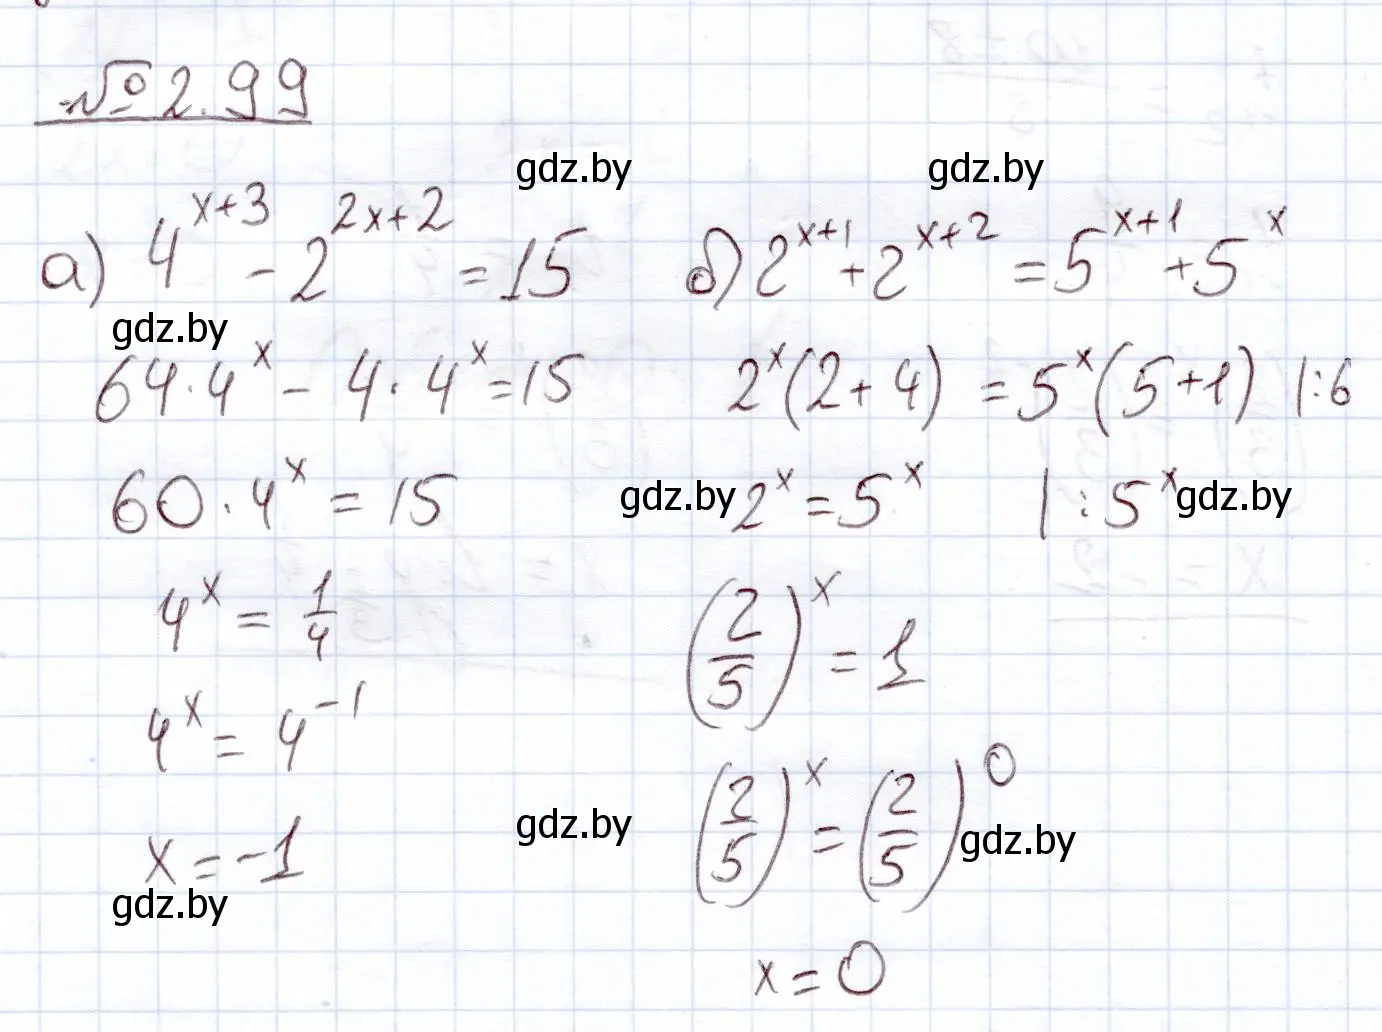 № 2.99
а) 4^(x+3) - 2^(2x+2) = 15
64·4^x - 4·4^x = 15
60·4^x = 15
4^x = 1/4
4^x = 4^(-1)
x = -1
б) 2^(x+1) + 2^(x+2) = 5^(x+1) + 5^x
2^x (2+4) = 5^x (5+1) |:6
2^x = 5^x |:5^x
(2/5)^x = 1
(2/5)^x = (2/5)^0
x = 0
gdz.by
gdz.by
gdz.by
gdz.by
gdz.by
gdz.by
gdz.by
gdz.by